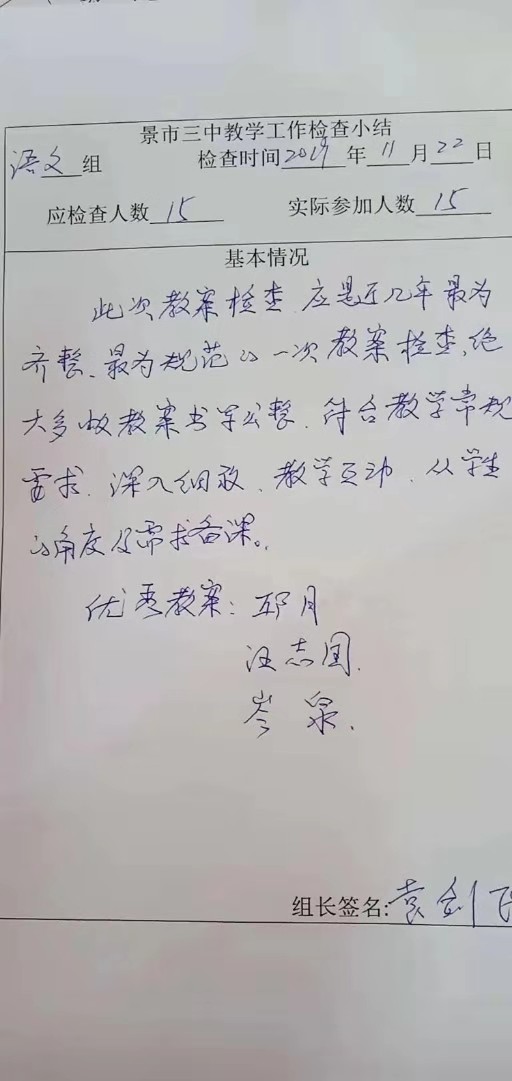 景市三中教学工作检查小结
语文组 检查时间2019年11月22日
应检查人数15 实际参加人数15
基本情况
此次教案检查,应是近几年最为
齐整、最为规范的一次教案检查,绝
大多数教案书写公整、符合教学常规
需求、深入细致、教学互动、从学生
的角度及需求备课。
优秀教案:邱月
汪志国.
岑泉.
组长签名:袁剑